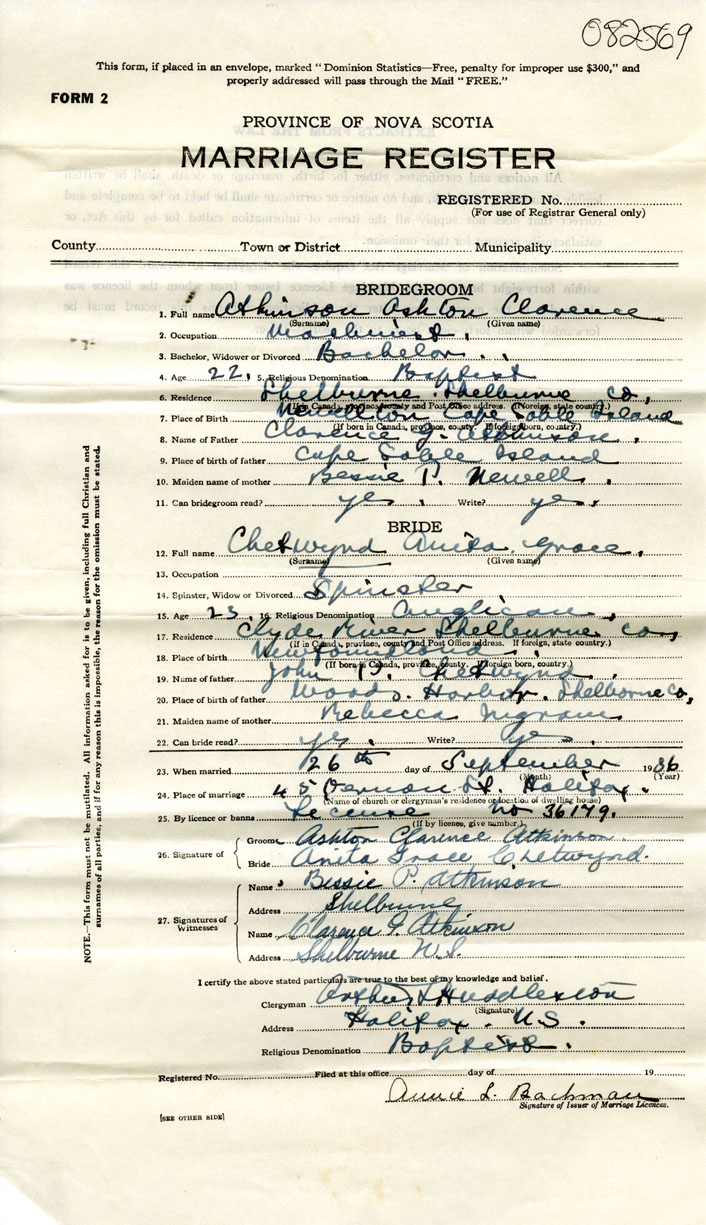 082569
This form, if placed in an envelope, marked " Dominion Statistics—Free, penalty for improper use $300," and
properly addressed will pass through the Mail " FREE."
FORM 2
PROVINCE OF NOVA SCOTIA
MARRIAGE REGISTER
REGISTERED No.
(For use of Registrar General only)
County Town or District Municipality
BRIDEGROOM
1. Full name Atkinson Ashton Clarence
(Surname) (Given name)
2. Occupation Machinist.
3. Bachelor, Widower or Divorced Bachelor.
4. Age 22. 5. Religious Denomination Baptist
6. Residence Shelburne Shelburne Co,
(If in Canada, province, county and Post Office address. If foreign, state country.)
7. Place of Birth Newellton Cape Sable Island
(If born in Canada, province, county. If foreign born, country.)
8. Name of Father Clarence J. Atkinson.
9. Place of birth of father Cape Sable Island
10. Maiden name of mother Bessie P. Newell.
11. Can bridegroom read? yes. Write? yes.
BRIDE
12. Full name Chetwynd Anita Grace.
(Surname) (Given name)
13. Occupation
14. Spinster, Widow or Divorced Spinster
15. Age 23. 16. Religious Denomination Anglican.
17. Residence Clyde River Shelburne Co,
(If in Canada, province, county and Post Office address. If foreign, state country.)
18. Place of birth Newfoundland.
(If born in Canada, province, county. If foreign born, country.)
19. Name of father John P. Chetwynd.
20. Place of birth of father Woods Harbor. Shelborne Co,
21. Maiden name of mother Rebecca Ingram
22. Can bride read? yes. Write? yes.
23. When married 26th day of September 1936
(Month) (Year)
24. Place of marriage 45 Vernon St. Halifax.
(Name of church or clergyman's residence or location of dwelling house)
25. By licence or banns License No 36149.
(If by licence, give number.)
26. Signature of
Groom Ashton Clarence Atkinson.
Bride Anita Grace Chetwynd.
27. Signatures of Witnesses
Name Bessie P. Atkinson
Address Shelburne
Name Clarence J. Atkinson
Address Shelburne N.S.
I certify the above stated particulars are true to the best of my knowledge and belief.
Clergyman Arthur Huddleston
(Signature)
Address Halifax. N.S.
Religious Denomination Baptist.
Registered No. Filed at this office day of 19
Annie L. Bachman
Signature of Issuer of Marriage Licences.
[SEE OTHER SIDE]
NOTE.—This form must not be mutilated. All information asked for is to be given, including full Christian and
surnames of all parties, and if for any reason this is impossible, the reason for the omission must be stated.